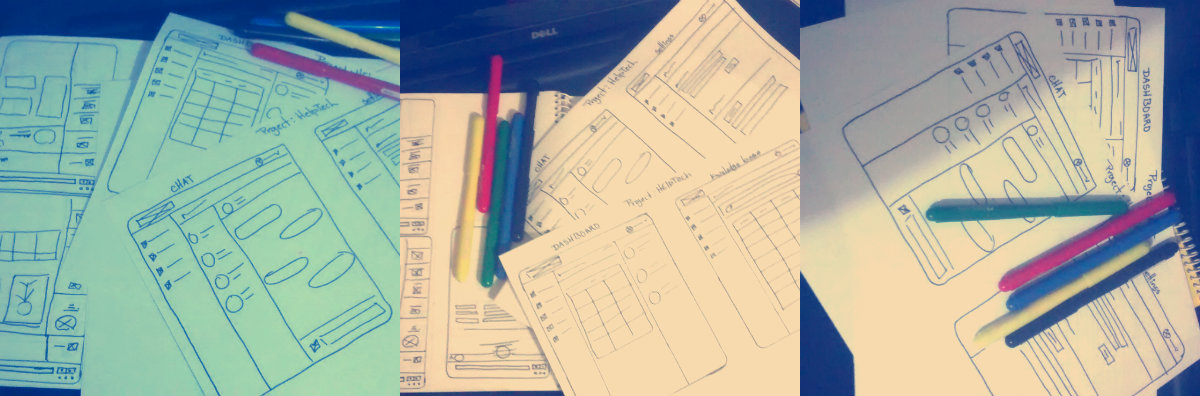 DASH
Project: HelpTech
CHAT
DELL
settings
Project: HelpTech
CHAT
Project: HelpTech
knowledge base
DASHBOARD
DASHBOARD
CHAT
Project
settings